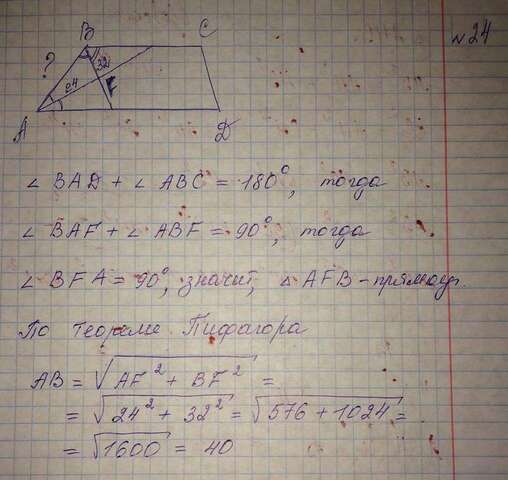 N 24
B C
? 24 32 F
A D
∠ BAD + ∠ ABC = 180°, тогда
∠ BAF + ∠ ABF = 90°, тогда
∠ BFA = 90°, значит, △ AFB - прямоуг.
По теореме Пифагора
AB = √AF² + BF² =
= √24² + 32² = √576 + 1024 =
= √1600 = 40